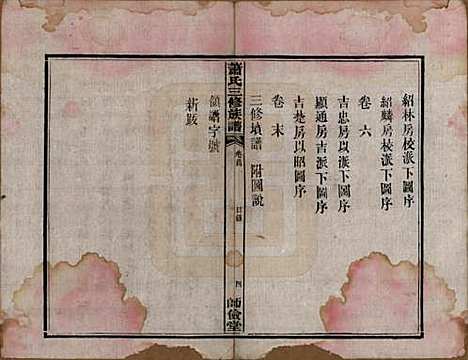 紹林房校派下圖序
紹麟房校派下圖序
卷六
吉忠房以派下圖序
顯通房吉派下圖序
吉楚房以昭圖序
卷末
三修墳譜 附圖說
蕭氏三修族譜
卷首
目錄
四
師儉堂
領譜字號
新跋